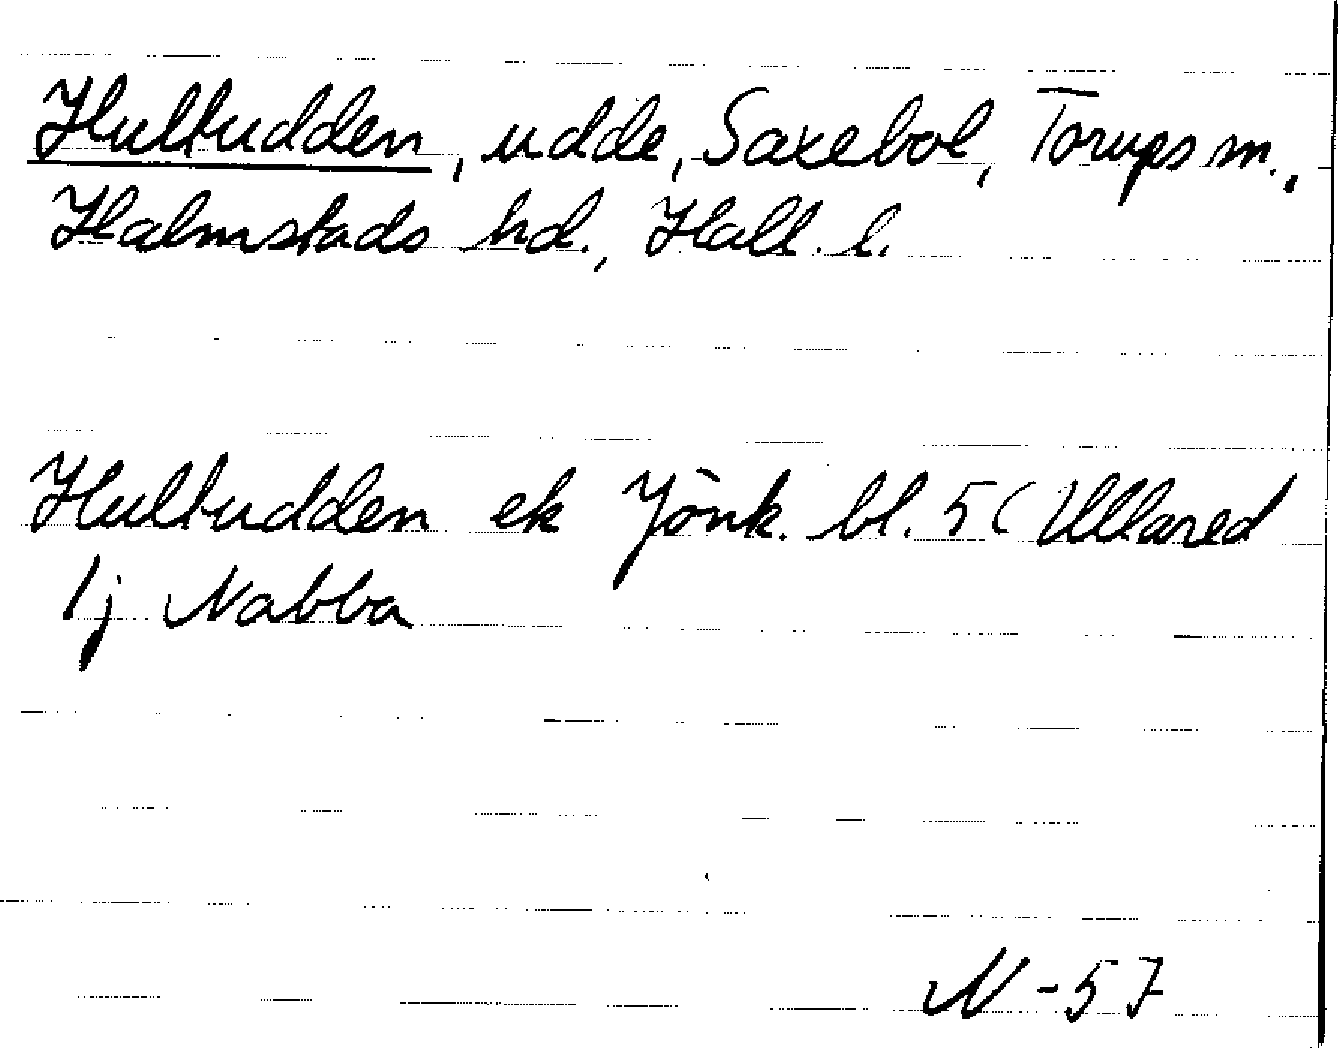 Hultudden, udde, Saxebol, Torups sn.,
Halmstads hd., Hall. l.
Hultudden ek Jönk. bl. 5 (Ullared
1j Nabba
N-57